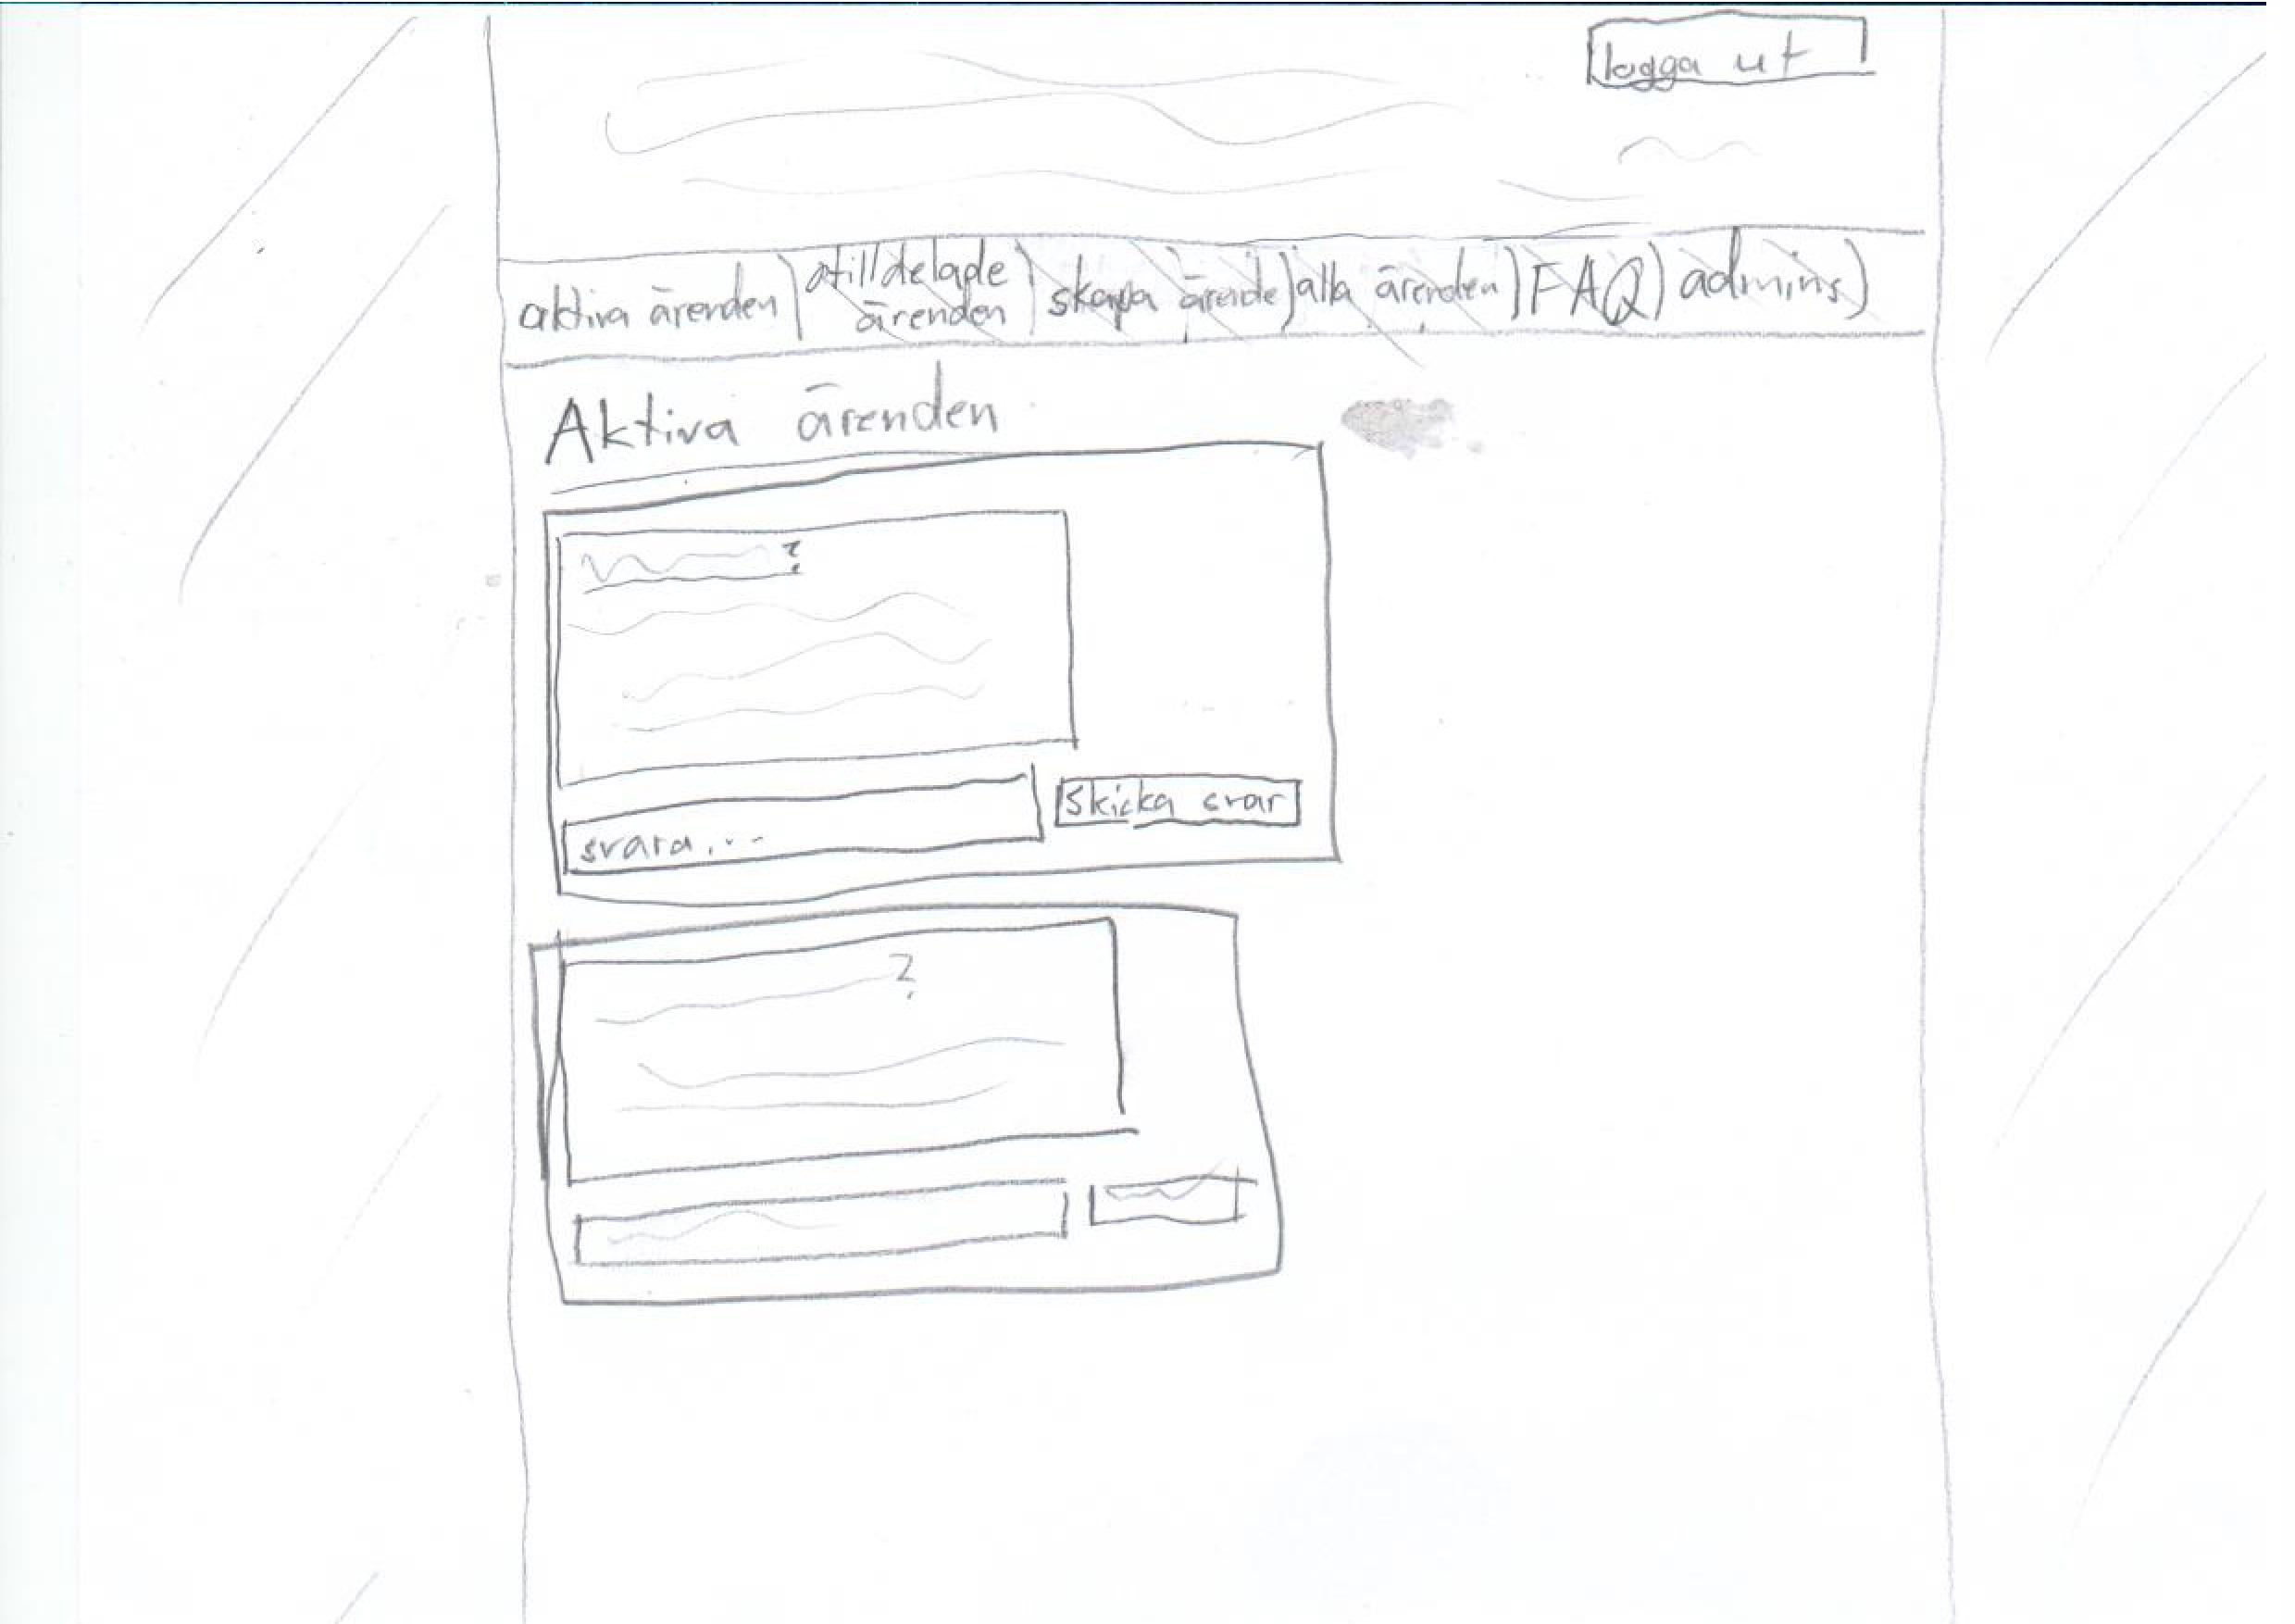 logga ut
aktiva ärenden
otilldelade
ärenden
skapa ärende
alla ärenden
FAQ
admins
Aktiva ärenden
?
svara...
Skicka svar
?